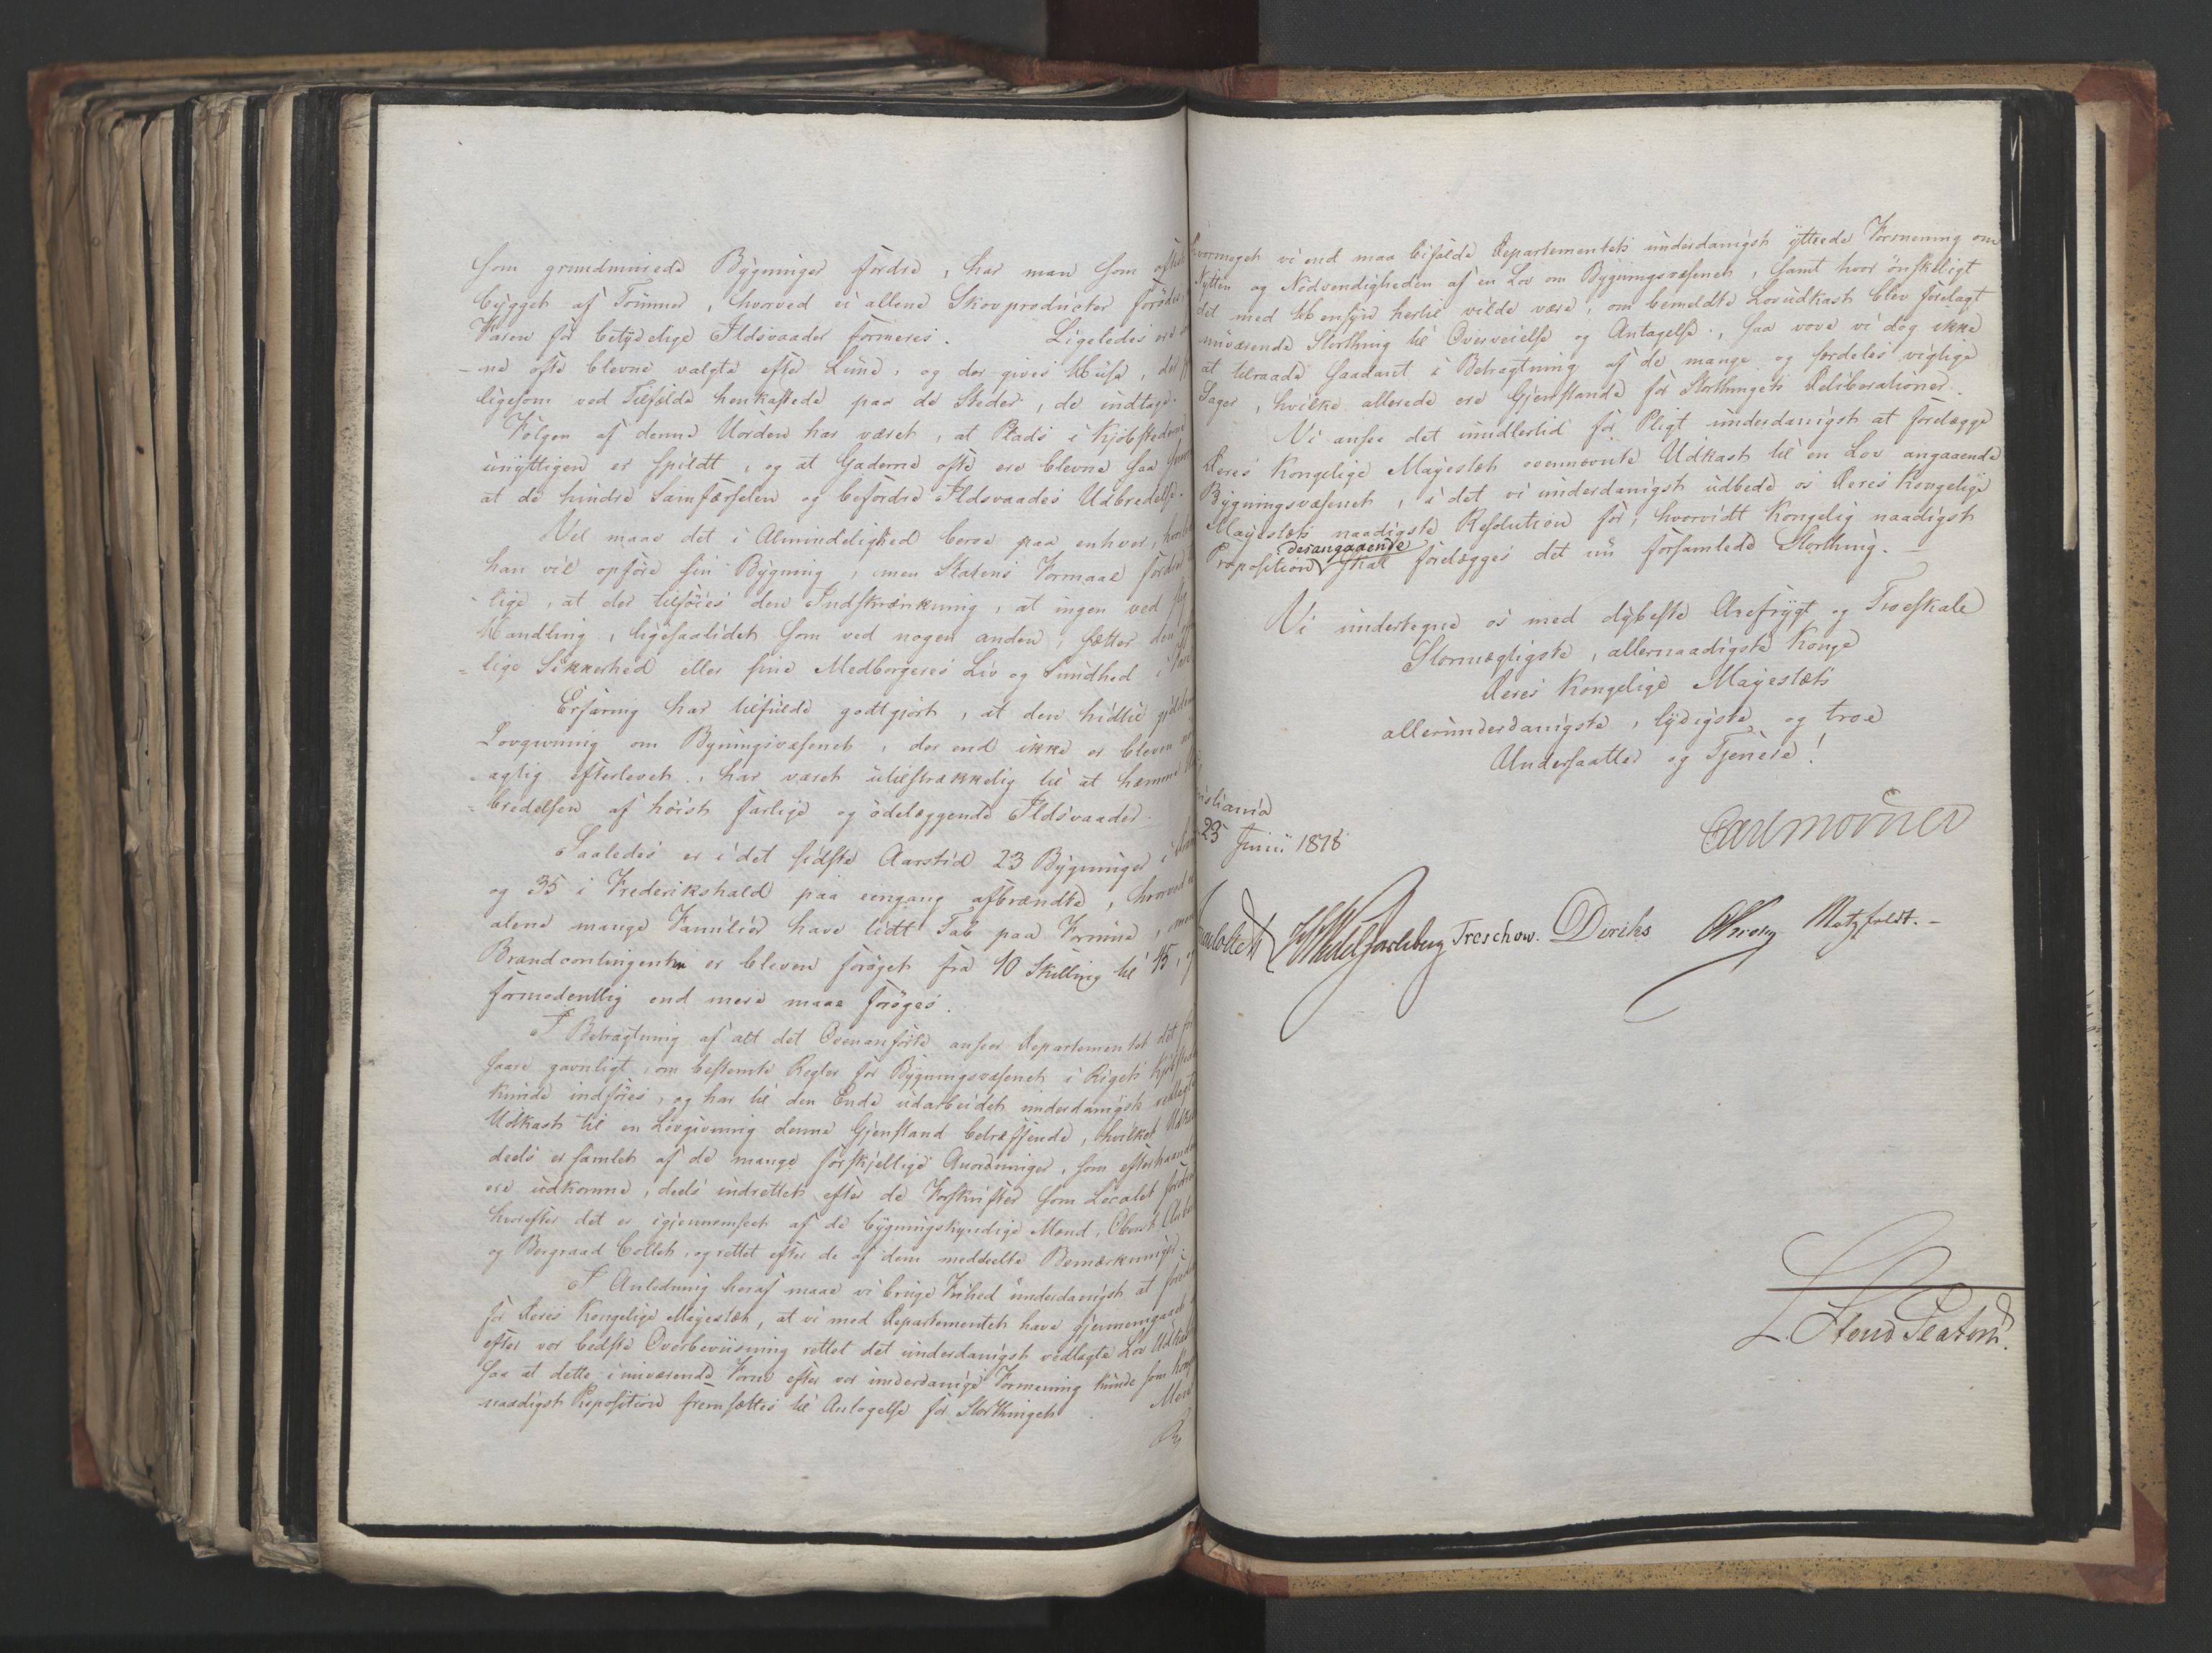 som grundmurede Bÿgninger fordre, har man som oftest
bÿgget af Tömmer, hvorved ei allene Skovproducter
Faren for betÿdelige Ildsvaader formeres. Ligeledes ere
-ne ofte blevne valgte efter Lune, og der gives Huse, der
ligesom ved Tilfælde henkastede paa de Steder, de indtage.
Fölgen af denne Uorden har været, at Plads i Kjöbstederne
unÿttigen er spildt, og at Gaderne ofte ere blevne saa
at de hindre Samfærselen og befordre Ildsvaades Udbredelse.
Vel maae det i Almindelighed beroe paa enhver,
han vil opföre sin Bÿgning, men Statens Formaal
-lige, at der tilföies den Indskrænkning, at ingen ved
Handling, ligesaalidet som ved nogen anden, sætter den
-lige Sikkerhed eller sine Medborgeres Liv og Sundhed i
Erfaring har tilfulde godtgjort, at den hidtil
Lovgivning om Byningsvæsenet, der end ikke er bleven
-agtig efterlevet, har været utilstrækkelig til at hæmme
-bredelsen af höist farlige og ödelæggende Ildsvaader.
Saaledes er i det sidste Aarstid 23 Bÿgninger i
og 35 i Frederikshald paa eengang afbrændte, hvorved
alene mange Familier have lidt Tab paa Formue,
Brandcontingenten er bleven foröget fra 10 Skilling til 45,
formodentlig end mere maae foröges.
I Betragtning af alt det Ovenanförte anseer Departementet det
saare gavnligt, om bestemte Regler for Bÿgningsvæsenet i Rigets
kunde indföres, og har til den Ende udarbeidet underdanigst vedlagte
Udkast til en Lovgivning denne Gjenstand betræffende, hvilket
deels er samlet af de mange forskjellige Anordninger, som efterhaanden
ere udkomne, deels indrettet efter de Forskrifter som Localet
hvorefter det er igjennemseet af de bÿgningskyndige Mænd, Oberst
og Bergraad Collett, og rettet efter de af dem meddeelte Bemærkninger.
I Anledning heraf maae vi bruge Frihed underdanigst at
for Deres Kongelige Majestæt, at vi med Departementet have gjennemgaaet
efter vor bedste Overbeviisning rettet det underdanigst vedlagte Lov Udkast
saa at dette i nuværende Form efter vor underdanige Formening kunde som
naadigst Proposition fremsættes til Antagelse for Storthinget.
Hvormeget vi end maa bifalde Departementets underdanigst ÿttrede Formening om
Nÿtten og Nödvendigheden af en Lov om Bÿgningsvæsenet, samt hvor önskeligt
det med Hensÿn hertil vilde være, om bemeldte Lovudkast blev forelagt
nuværende Storthing til Overveielse og Antagelse, saa vove vi dog ikke
at tilraade saadant i Betragtning af de mange og særdeles vigtige
Sager, hvilke allerede ere Gjenstande for Storthingets Deliberationer.
Vi ansee det imidlertid for Pligt underdanigst at forelægge
Deres Kongelige Majestæt ovennævnte Udkast til en Lov angaaende
Bÿgningsvæsenet, i det vi underdanigst udbede os Deres Kongelige
Majestæts naadigste Resolution for, hvorvidt Kongelig naadigst
derangaaende
Proposition skal forelægges det nu forsamlede Storthing.
Vi undertegne os med dybeste Ærefrÿgt og Troeskab
Stormægtigste, allernaadigste Konge
Deres Kongelige Majestæts
allerunderdanigste, lÿdigste og troe
Undersaatter og Tjenere!
Carl Mörner
23 Junii 1818
Treschow. Diriks Motzfeldt.